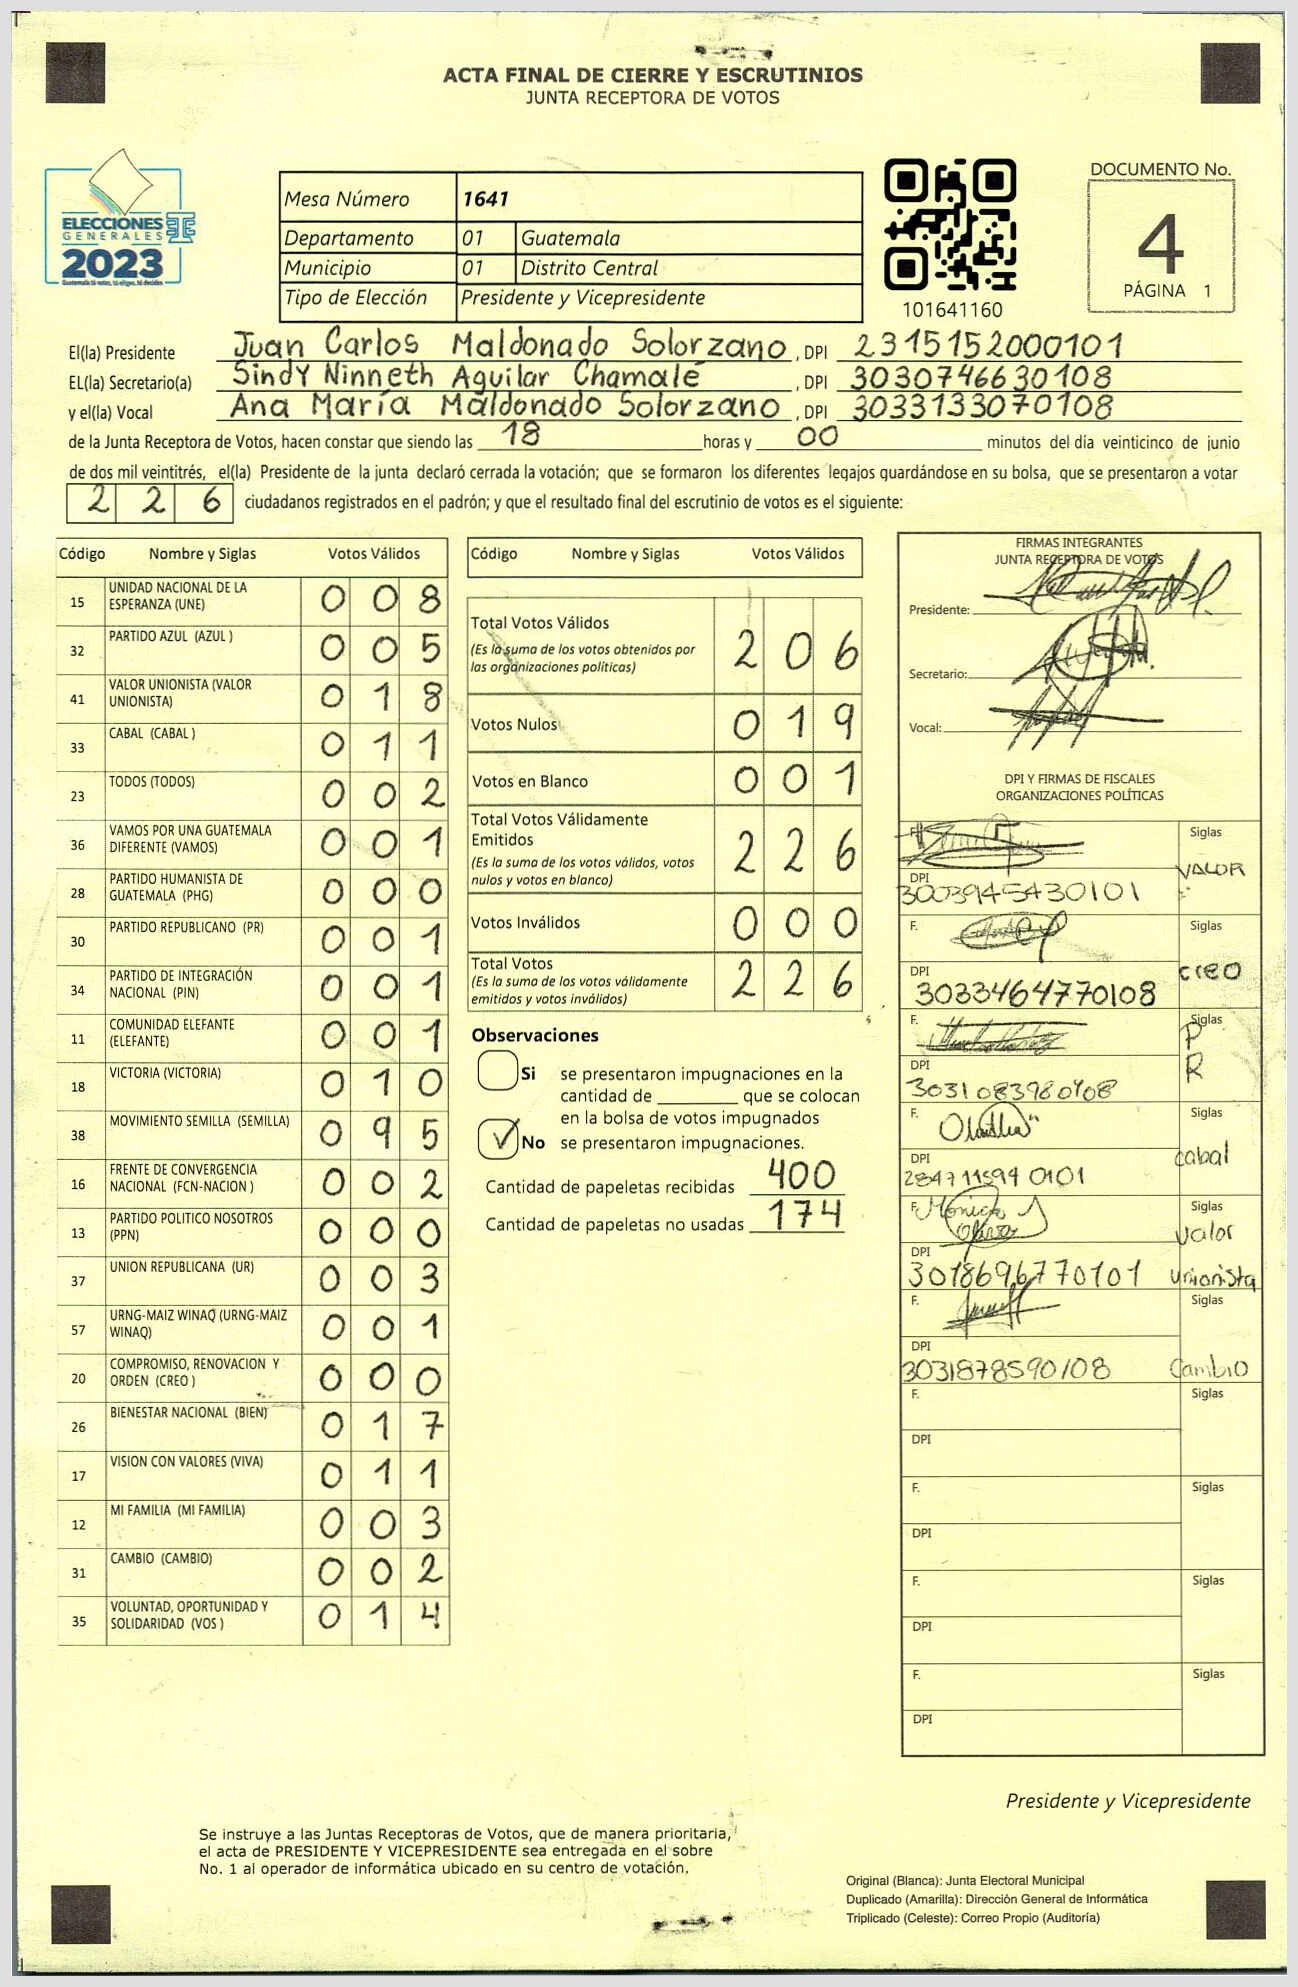 ACTA FINAL DE CIERRE Y ESCRUTINIOS
JUNTA RECEPTORA DE VOTOS
ELECCIONES
GENERALES
2023
Guatemala tú votas, tú eliges, tú decides
Mesa Número 1641
Departamento 01 Guatemala
Municipio 01 Distrito Central
Tipo de Elección Presidente y Vicepresidente
101641160
DOCUMENTO No.
4
PÁGINA 1
El(la) Presidente Juan Carlos Maldonado Solorzano, DPI 2315152000101
EL(la) Secretario(a) Sindy Ninneth Aguilar Chamalé, DPI 3030746630108
y el(la) Vocal Ana María Maldonado Solorzano, DPI 3033133070108
de la Junta Receptora de Votos, hacen constar que siendo las 18 horas y 00 minutos del día veinticinco de junio
de dos mil veintitrés, el(la) Presidente de la junta declaró cerrada la votación; que se formaron los diferentes legajos guardándose en su bolsa, que se presentaron a votar
2 2 6 ciudadanos registrados en el padrón; y que el resultado final del escrutinio de votos es el siguiente:
Código Nombre y Siglas Votos Válidos
15 UNIDAD NACIONAL DE LA ESPERANZA (UNE) 0 0 8
32 PARTIDO AZUL (AZUL ) 0 0 5
41 VALOR UNIONISTA (VALOR UNIONISTA) 0 1 8
33 CABAL (CABAL ) 0 1 1
23 TODOS (TODOS) 0 0 2
36 VAMOS POR UNA GUATEMALA DIFERENTE (VAMOS) 0 0 1
28 PARTIDO HUMANISTA DE GUATEMALA (PHG) 0 0 0
30 PARTIDO REPUBLICANO (PR) 0 0 1
34 PARTIDO DE INTEGRACIÓN NACIONAL (PIN) 0 0 1
11 COMUNIDAD ELEFANTE (ELEFANTE) 0 0 1
18 VICTORIA (VICTORIA) 0 1 0
38 MOVIMIENTO SEMILLA (SEMILLA) 0 9 5
16 FRENTE DE CONVERGENCIA NACIONAL (FCN-NACION ) 0 0 2
13 PARTIDO POLITICO NOSOTROS (PPN) 0 0 0
37 UNION REPUBLICANA (UR) 0 0 3
57 URNG-MAIZ WINAQ (URNG-MAIZ WINAQ) 0 0 1
20 COMPROMISO, RENOVACION Y ORDEN (CREO ) 0 0 0
26 BIENESTAR NACIONAL (BIEN) 0 1 7
17 VISION CON VALORES (VIVA) 0 1 1
12 MI FAMILIA (MI FAMILIA) 0 0 3
31 CAMBIO (CAMBIO) 0 0 2
35 VOLUNTAD, OPORTUNIDAD Y SOLIDARIDAD (VOS ) 0 1 4
Código Nombre y Siglas Votos Válidos
Total Votos Válidos 2 0 6
(Es la suma de los votos obtenidos por
las organizaciones políticas)
Votos Nulos 0 1 9
Votos en Blanco 0 0 1
Total Votos Válidamente
Emitidos 2 2 6
(Es la suma de los votos válidos, votos
nulos y votos en blanco)
Votos Inválidos 0 0 0
Total Votos 2 2 6
(Es la suma de los votos válidamente
emitidos y votos inválidos)
Observaciones
Si se presentaron impugnaciones en la
cantidad de ________ que se colocan
en la bolsa de votos impugnados
✓ No se presentaron impugnaciones.
Cantidad de papeletas recibidas 400
Cantidad de papeletas no usadas 174
FIRMAS INTEGRANTES
JUNTA RECEPTORA DE VOTOS
Presidente:
Secretario:
Vocal:
DPI Y FIRMAS DE FISCALES
ORGANIZACIONES POLÍTICAS
F. Siglas
DPI VALOR
3003945430101
F. Siglas
DPI creo
3033464770108
F. Siglas
DPI PR
3031083980108
F. Siglas
DPI cabal
2847115940101
F. Mónica Siglas
DPI valor
3018696770101 unionista
F. Siglas
DPI
3031878590108 Cambio
F. Siglas
DPI
F. Siglas
DPI
F. Siglas
DPI
F. Siglas
DPI
Presidente y Vicepresidente
Se instruye a las Juntas Receptoras de Votos, que de manera prioritaria,
el acta de PRESIDENTE Y VICEPRESIDENTE sea entregada en el sobre
No. 1 al operador de informática ubicado en su centro de votación.
Original (Blanca): Junta Electoral Municipal
Duplicado (Amarilla): Dirección General de Informática
Triplicado (Celeste): Correo Propio (Auditoría)